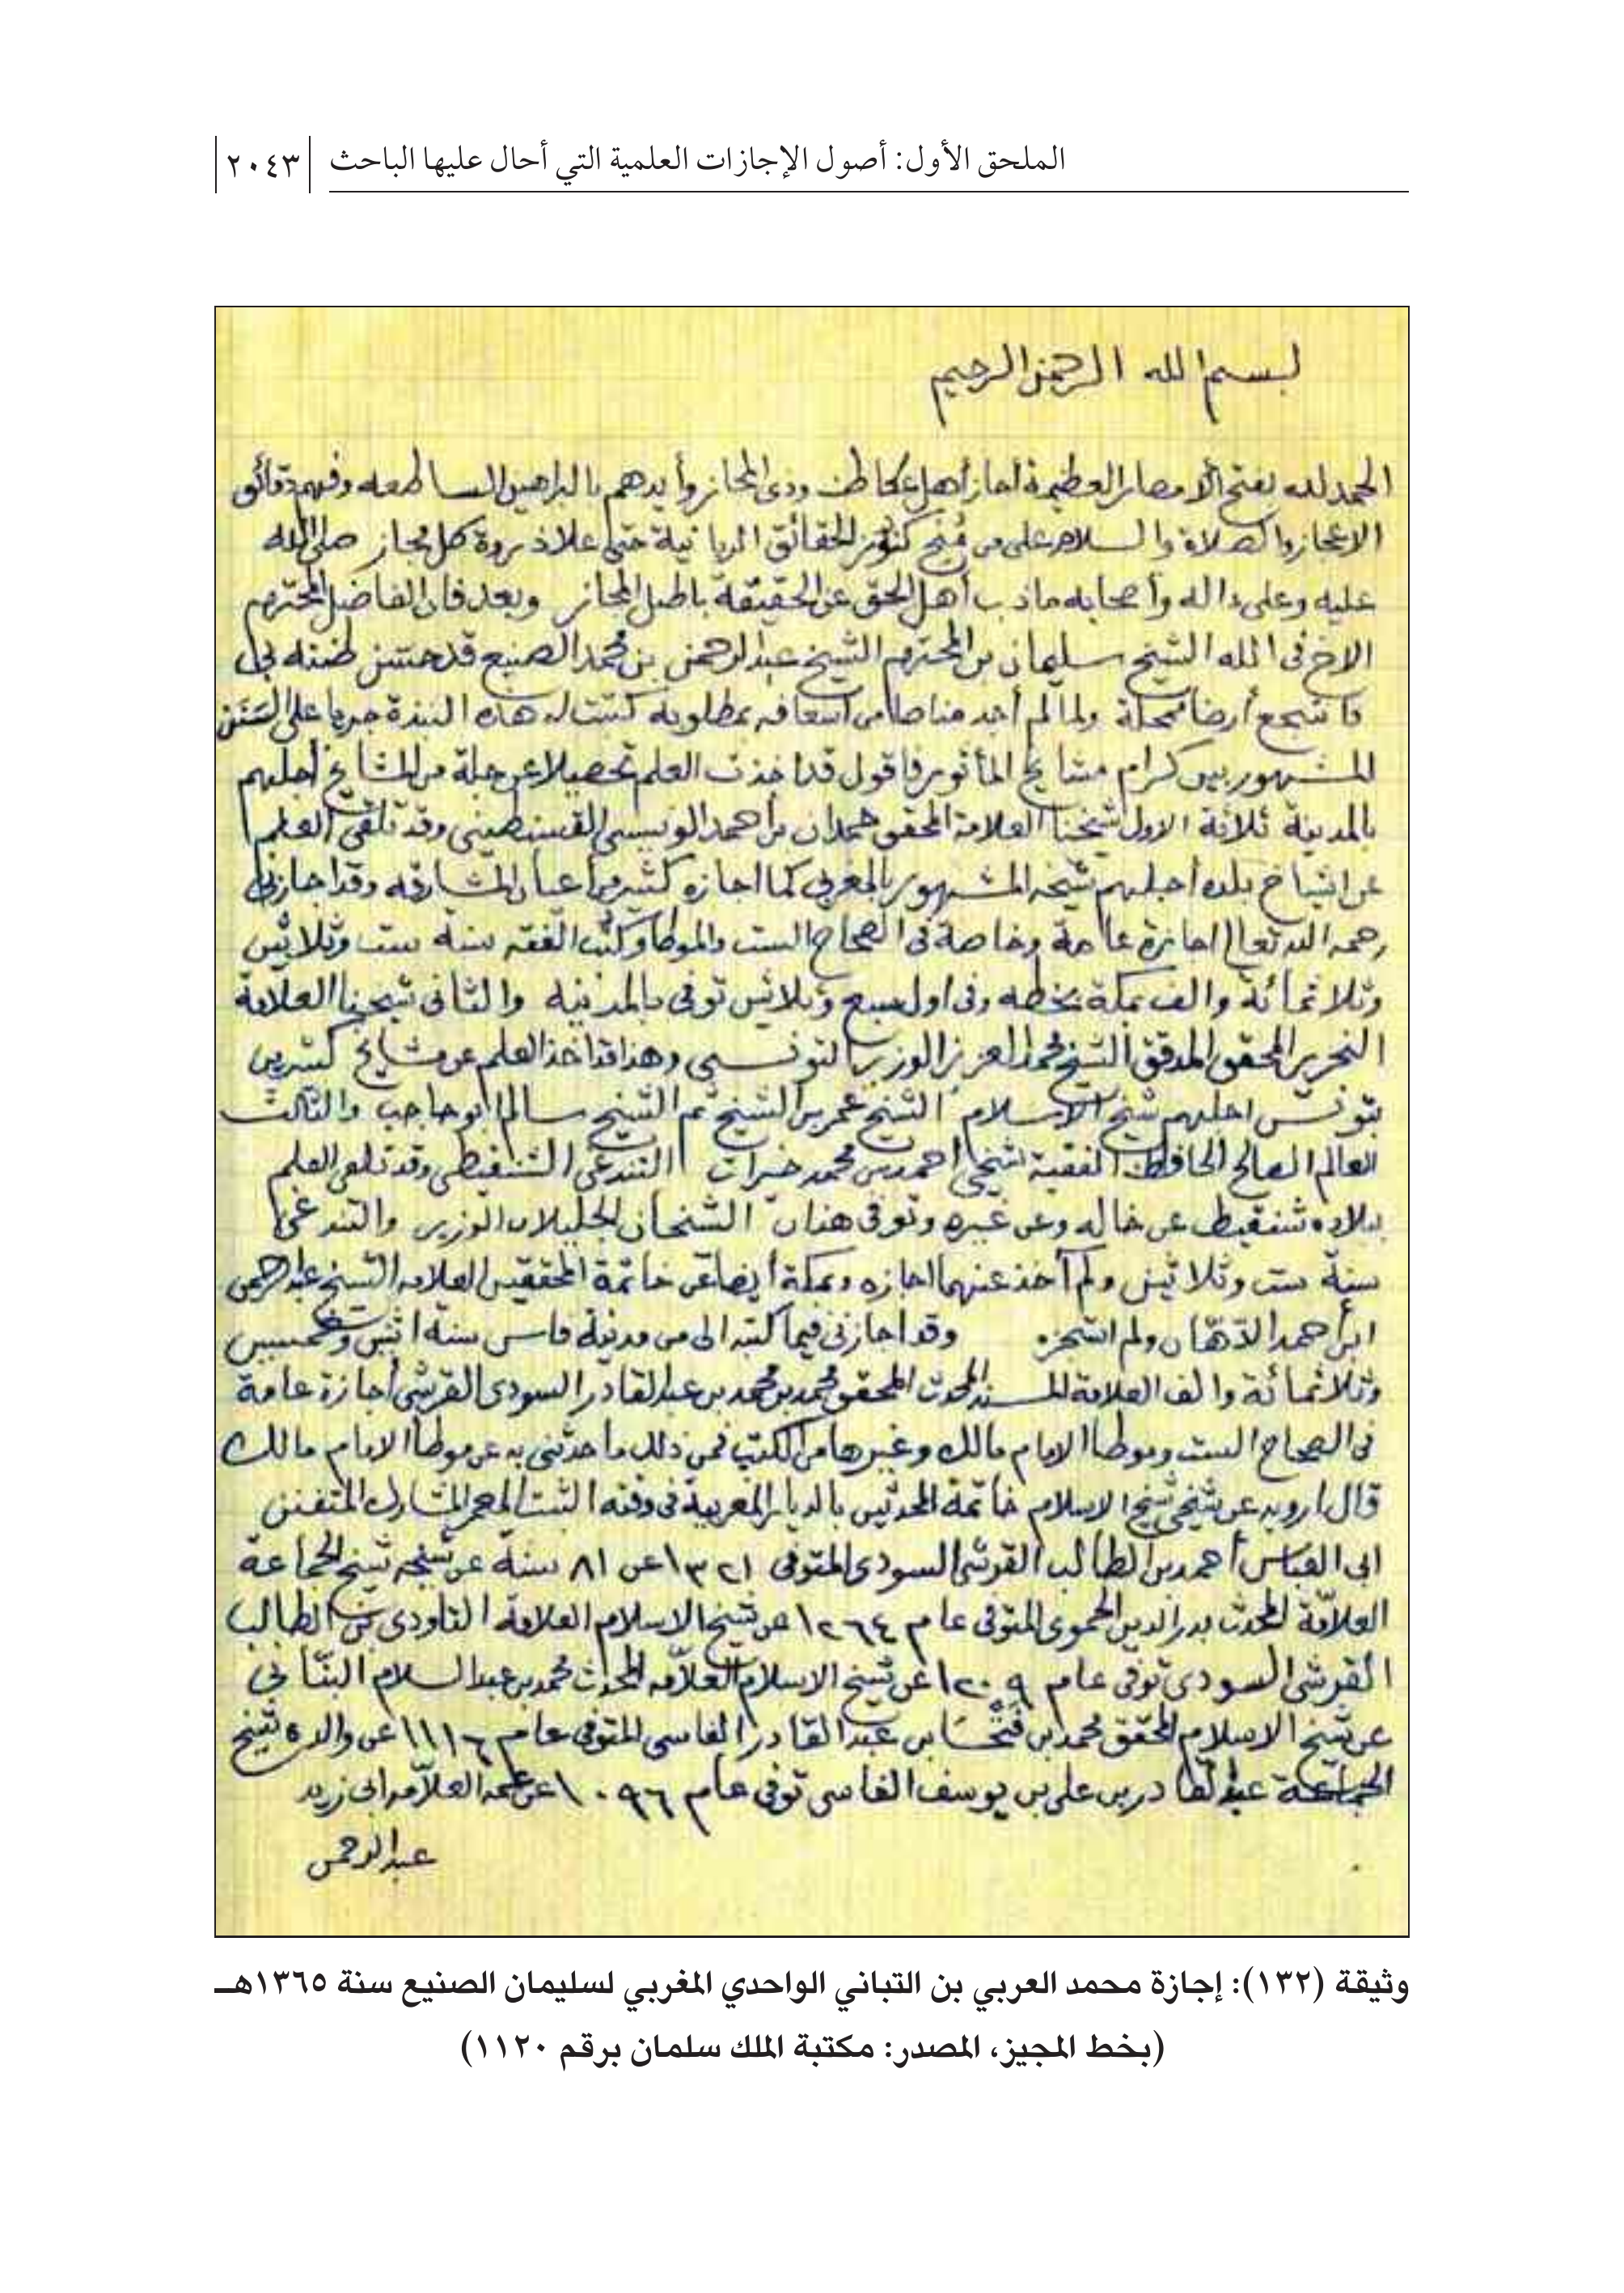 الملحق الأول: أصول الإجازات العلمية التي أحال عليها الباحث ٢٠٤٣
بسم الله الرحمن الرحيم
الحمد لله بفتح الأمصار العظيمة أجاز أهل عكاظ وذى المجاز وأيدهم بالبراهين الساطعه وفهم دقائق
الاعجاز والصلاة والسلام على من مُنِح كنوز الحقائق الربانية حتى علا ذروة كل مجاز صلى الله
عليه وعلى ءاله وأصحابه ماذب أهل الحق عن الحقيقة باطل المجاز وبعد فان الفاضل المحترم
الاخ فى الله الشيخ سليمان بن المحترم الشيخ عبد الرحمن بن محمد الصنيع قد حسن ظنه بى
فانتجع أرضا محلة ولما لم أجد مناصا من اسعافه بمطلوبه كتبت له هذه النبذة جريا على السَنَن
المشهور بين كرام مشايخ المأثور فاقول قد اخذت العلم تحصيلا عن جلة من المشايخ أجلهم
بالمدينة ثلاثة الاول شيخنا العلامة المحقق حمدان بن أحمد الونيسى القسنطينى وقد تلقى العلم
عن اشياخ بلده أجلهم شيخه المشهور بالمغربى كما اجازه كثير من أعيان المشارقه وقد اجازنى
رحمه الله تعالى اجازة عامة وخاصة فى الصحاح الست والموطأ وكتب الفقه سنة ست وثلاثين
وثلاثمائة والف بمكة بخطه وفى اول سبع وثلاثين توفى بالمدينه والثانى شيخنا العلامة
النحرير المحقق المدقق الشيخ محمد العزيز الوزير التونسى وهذا قد اخذ العلم عن مشايخ كثيرين
بتونس اجلهم شيخ الاسلام الشيخ عمر بن الشيخ ثم الشيخ سالم ابو حاجب والثالث
العالم الصالح الحافظ الفقيه شيخى أحمد بن محمد خيرات التندغى الشنقيطى وقد تلقى العلم
ببلاده شنقيط عن خاله وعن غيره وتوفى هذان الشيخان الجليلان الوزير والتندغى
سنة ست وثلاثين ولم آخذ عنهما اجازه وبمكة أيضا عن خاتمة المحققين العلامه الشيخ عبد الرحمن
ابن أحمد الدهّان ولم استجزه وقد اجازنى فيما كتبه الى من مدينة فاس سنة اثنين وخمسين
وثلاثمائة والف العلامة المسند المحدث المحقق محمد بن محمد بن عبد القادر السودى القرشى أجازة عامة
فى الصحاح الست وموطأ الامام مالك وغيرها من الكتب فمن ذلك ما حدثنى به عن موطأ الامام مالك
قال ارويه عن شيخى شيخ الاسلام خاتمة المحدثين بالديار المغربية فى وقته الثبت المعمر المشارك المتفنن
ابى العباس أحمد بن الطالب القرشى السودى المتوفى ١٣٢١ عن ٨١ سنة عن شيخه شيخ الجماعة
العلامّة المحدث بدر الدين الحموى المتوفى عام ١٢٦٤ عن شيخ الاسلام العلامة التاودى بن الطالب
القرشى السودى توفى عام ١٢٠٩ عن شيخ الاسلام العلامّه المحدث محمد بن عبد السلام البنّانى
عن شيخ الاسلام المحقق محمد بن فَتْحًا بن عبد القادر الفاسى المتوفى عام ١١١٦ عن والده شيخ
الجماعة عبد القادر بن على بن يوسف الفاسى توفى عام ١٠٩٦ عن عمه العلامّه ابى زيد
عبد الرحمن
وثيقة (١٣٢): إجازة محمد العربي بن التباني الواحدي المغربي لسليمان الصنيع سنة ١٣٦٥هـ
(بخط المجيز، المصدر: مكتبة الملك سلمان برقم ١١٢٠)